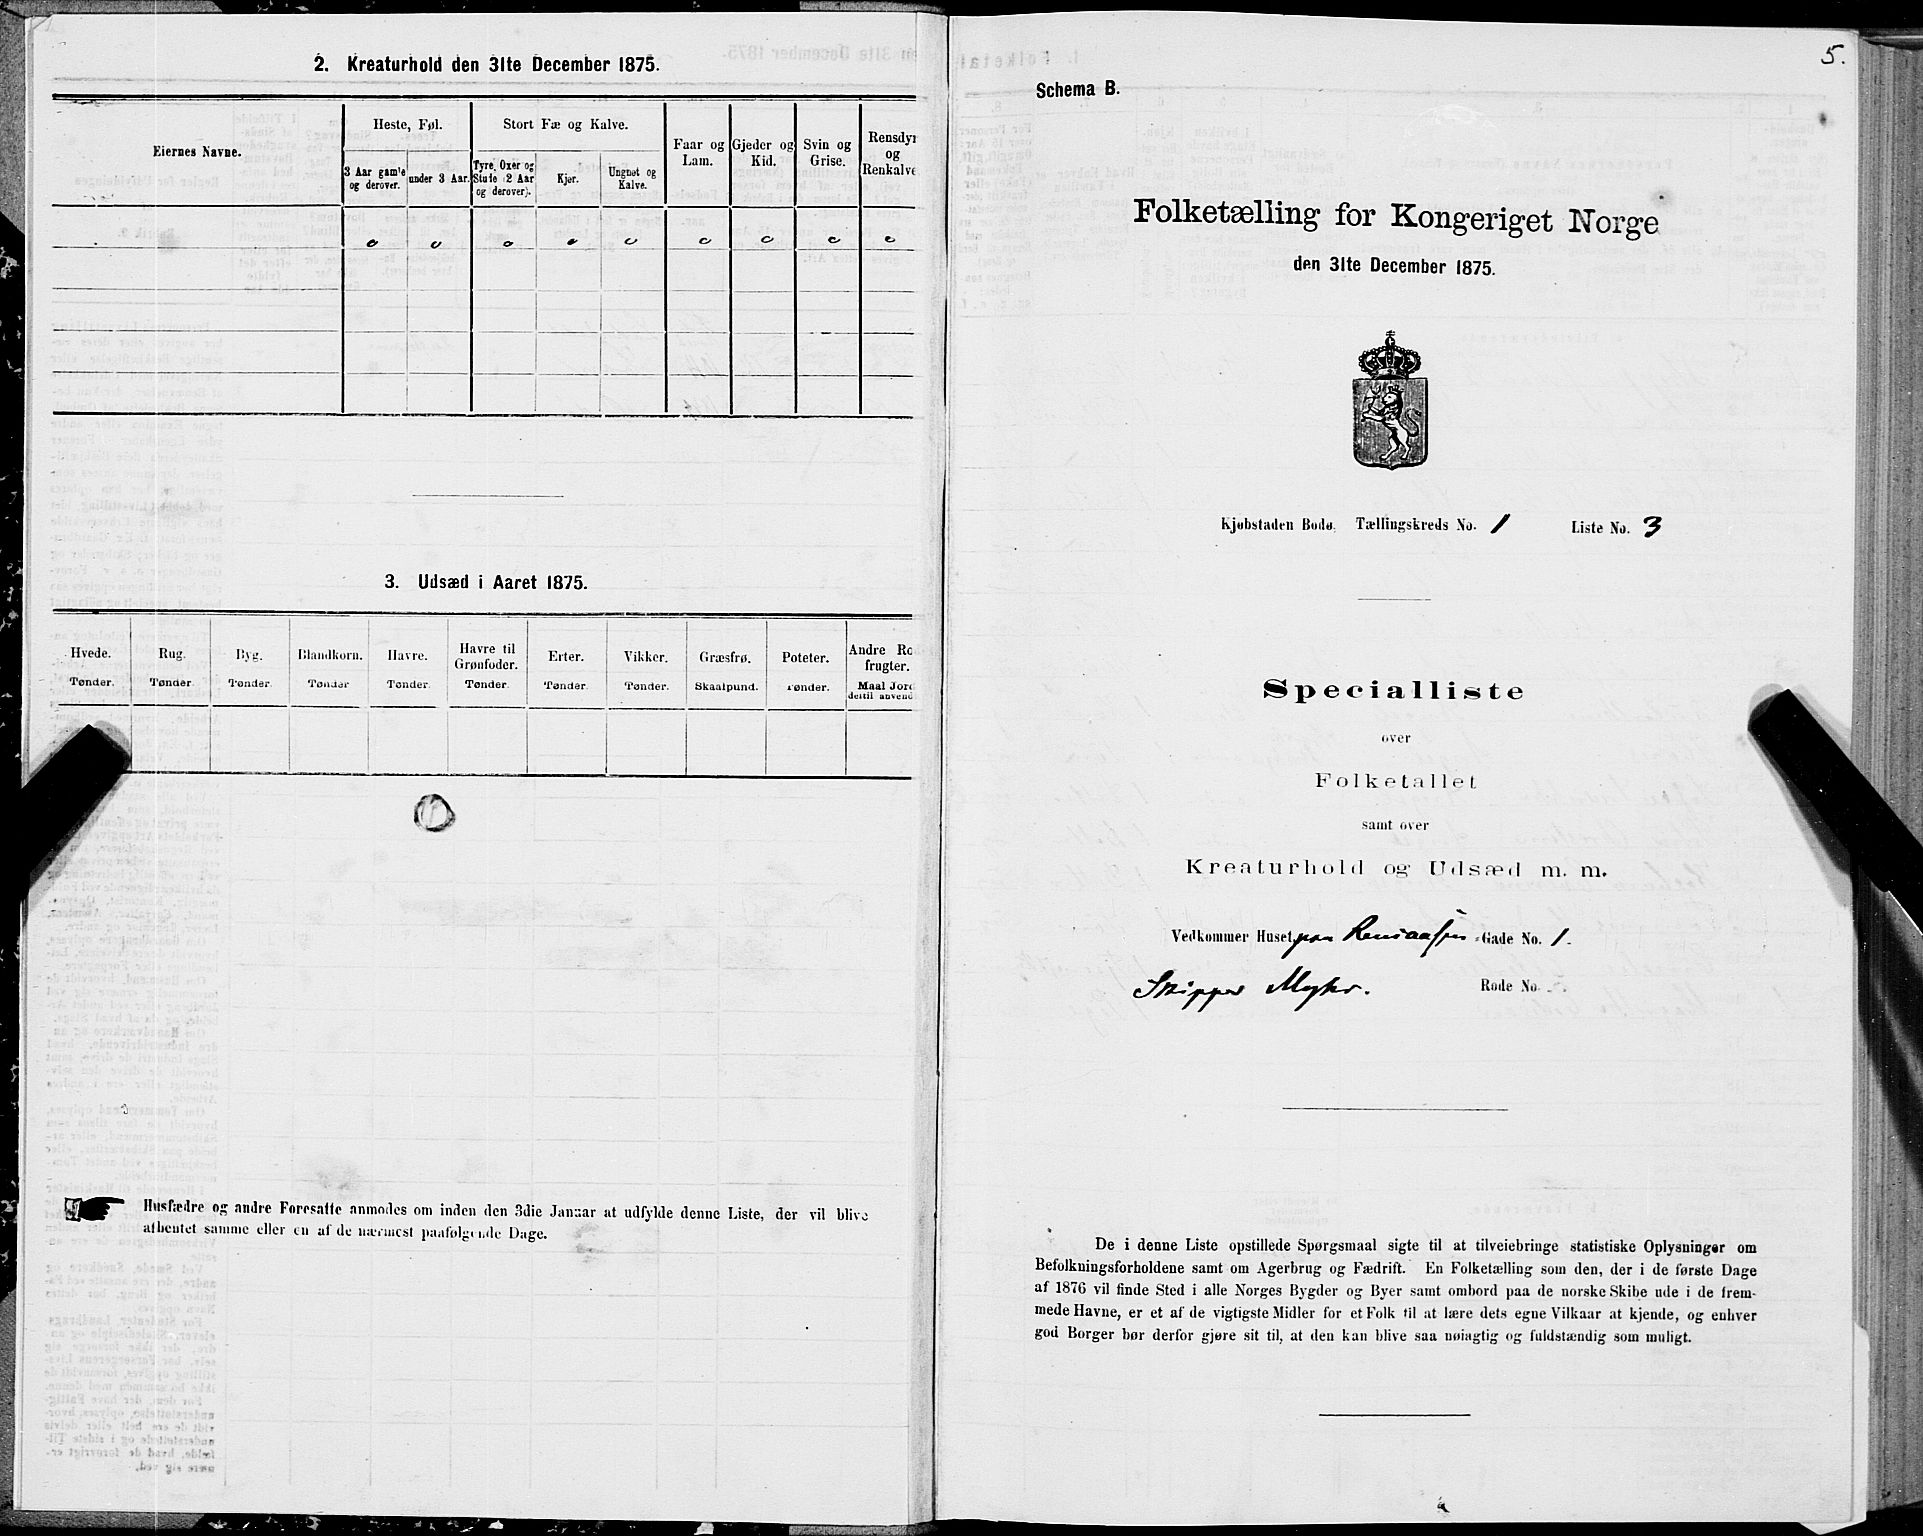 2. Kreaturhold den 31te December 1875.
Eiernes Navne.
Heste, Føl.
3 Aar gamle og derover.
under 3 Aar.
Stort Fæ og Kalve.
Tyre, Oxer og Stute (2 Aar og derover).
Kjør.
Ungnøt og Kalve.
Faar og Lam.
Gjeder og Kid.
Svin og Grise.
Rensdyr og Renkalve
0 0 0 0 0 0 0 0 0
3. Udsæd i Aaret 1875.
Hvede. Rug. Byg. Blandkorn. Havre. Havre til Grønfoder. Erter. Vikker. Græsfrø. Poteter. Andre Ro frugter.
Tønder. Tønder. Tønder. Tønder Tønder. Tønder. Tønder. Tønder. Skaalpund. Tønder. Maal Jord dertil anvend
Husfædre og andre Foresatte anmodes om inden den 3die Januar at udfylde denne Liste, der vil blive
afhentet samme eller en af de nærmest paafølgende Dage.
5.
Schema B.
Folketælling for Kongeriget Norge
den 31te December 1875.
Kjøbstaden Bodø. Tællingskreds No. 1 Liste No. 3
Specialliste
over
Folketallet
samt over
Kreaturhold og Udsæd m. m.
Vedkommer Huset paa Rensaasen Gade No. 1.
Skipper Myhr. Rode No.
De i denne Liste opstillede Spørgsmaal sigte til at tilveiebringe statistiske Oplysninger om
Befolkningsforholdene samt om Agerbrug og Fædrift. En Folketælling som den, der i de første Dage
af 1876 vil finde Sted i alle Norges Bygder og Byer samt ombord paa de norske Skibe ude i de frem-
mede Havne, er et af de vigtigste Midler for et Folk til at lære dets egne Vilkaar at kjende, og enhver
god Borger bør derfor gjøre sit til, at den kan blive saa nøiagtig og fuldstændig som muligt.